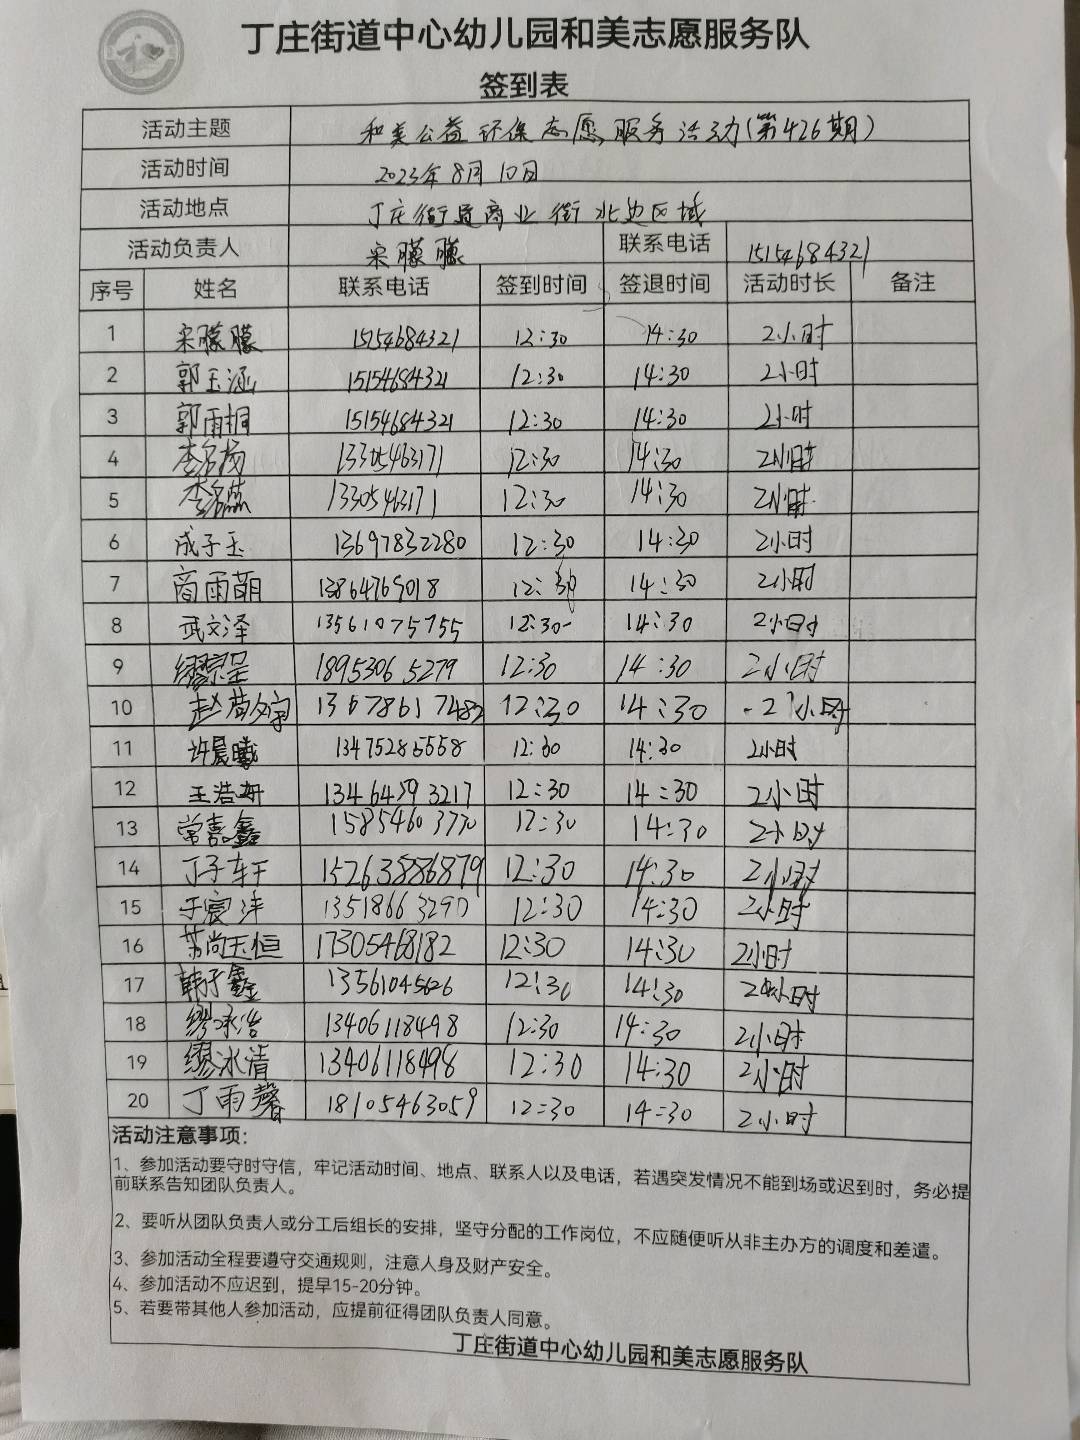 丁庄街道中心幼儿园和美志愿服务队
签到表
活动主题 和美公益环保志愿服务活动(第426期)
活动时间 2023年8月10日
活动地点 丁庄街道商业街北边区域
活动负责人 宋朦朦 联系电话 15154684321
序号 姓名 联系电话 签到时间 签退时间 活动时长 备注
1 宋朦朦 15154684321 12:30 14:30 2小时
2 郭玉涵 15154684321 12:30 14:30 2小时
3 郭雨桐 15154684321 12:30 14:30 2小时
4 李名扬 13305463171 12:30 14:30 2小时
5 李名蕊 13305463171 12:30 14:30 2小时
6 成子玉 13697832280 12:30 14:30 2小时
7 商雨萌 13864765018 12:30 14:30 2小时
8 武文泽 13561075755 12:30 14:30 2小时
9 缪宗呈 18953065279 12:30 14:30 2小时
10 赵 12:30 14:30 2小时
11 许晨曦 13475285558 12:30 14:30 2小时
12 王浩妍 13464593217 12:30 14:30 2小时
13 常嘉鑫 15854603770 12:30 14:30 2小时
14 丁子轩 15263886879 12:30 14:30 2小时
15 于宸沣 13518663290 12:30 14:30 2小时
16 苏尚玉恒 17305468182 12:30 14:30 2小时
17 韩子鑫 13561045626 12:30 14:30 2小时
18 缪承浩 13406118498 12:30 14:30 2小时
19 缪冰清 13406118498 12:30 14:30 2小时
20 丁雨馨 18105463059 12:30 14:30 2小时
活动注意事项：
1、参加活动要守时守信，牢记活动时间、地点、联系人以及电话，若遇突发情况不能到场或迟到时，务必提
前联系告知团队负责人。
2、要听从团队负责人或分工后组长的安排，坚守分配的工作岗位，不应随便听从非主办方的调度和差遣。
3、参加活动全程要遵守交通规则，注意人身及财产安全。
4、参加活动不应迟到，提早15-20分钟。
5、若要带其他人参加活动，应提前征得团队负责人同意。
丁庄街道中心幼儿园和美志愿服务队